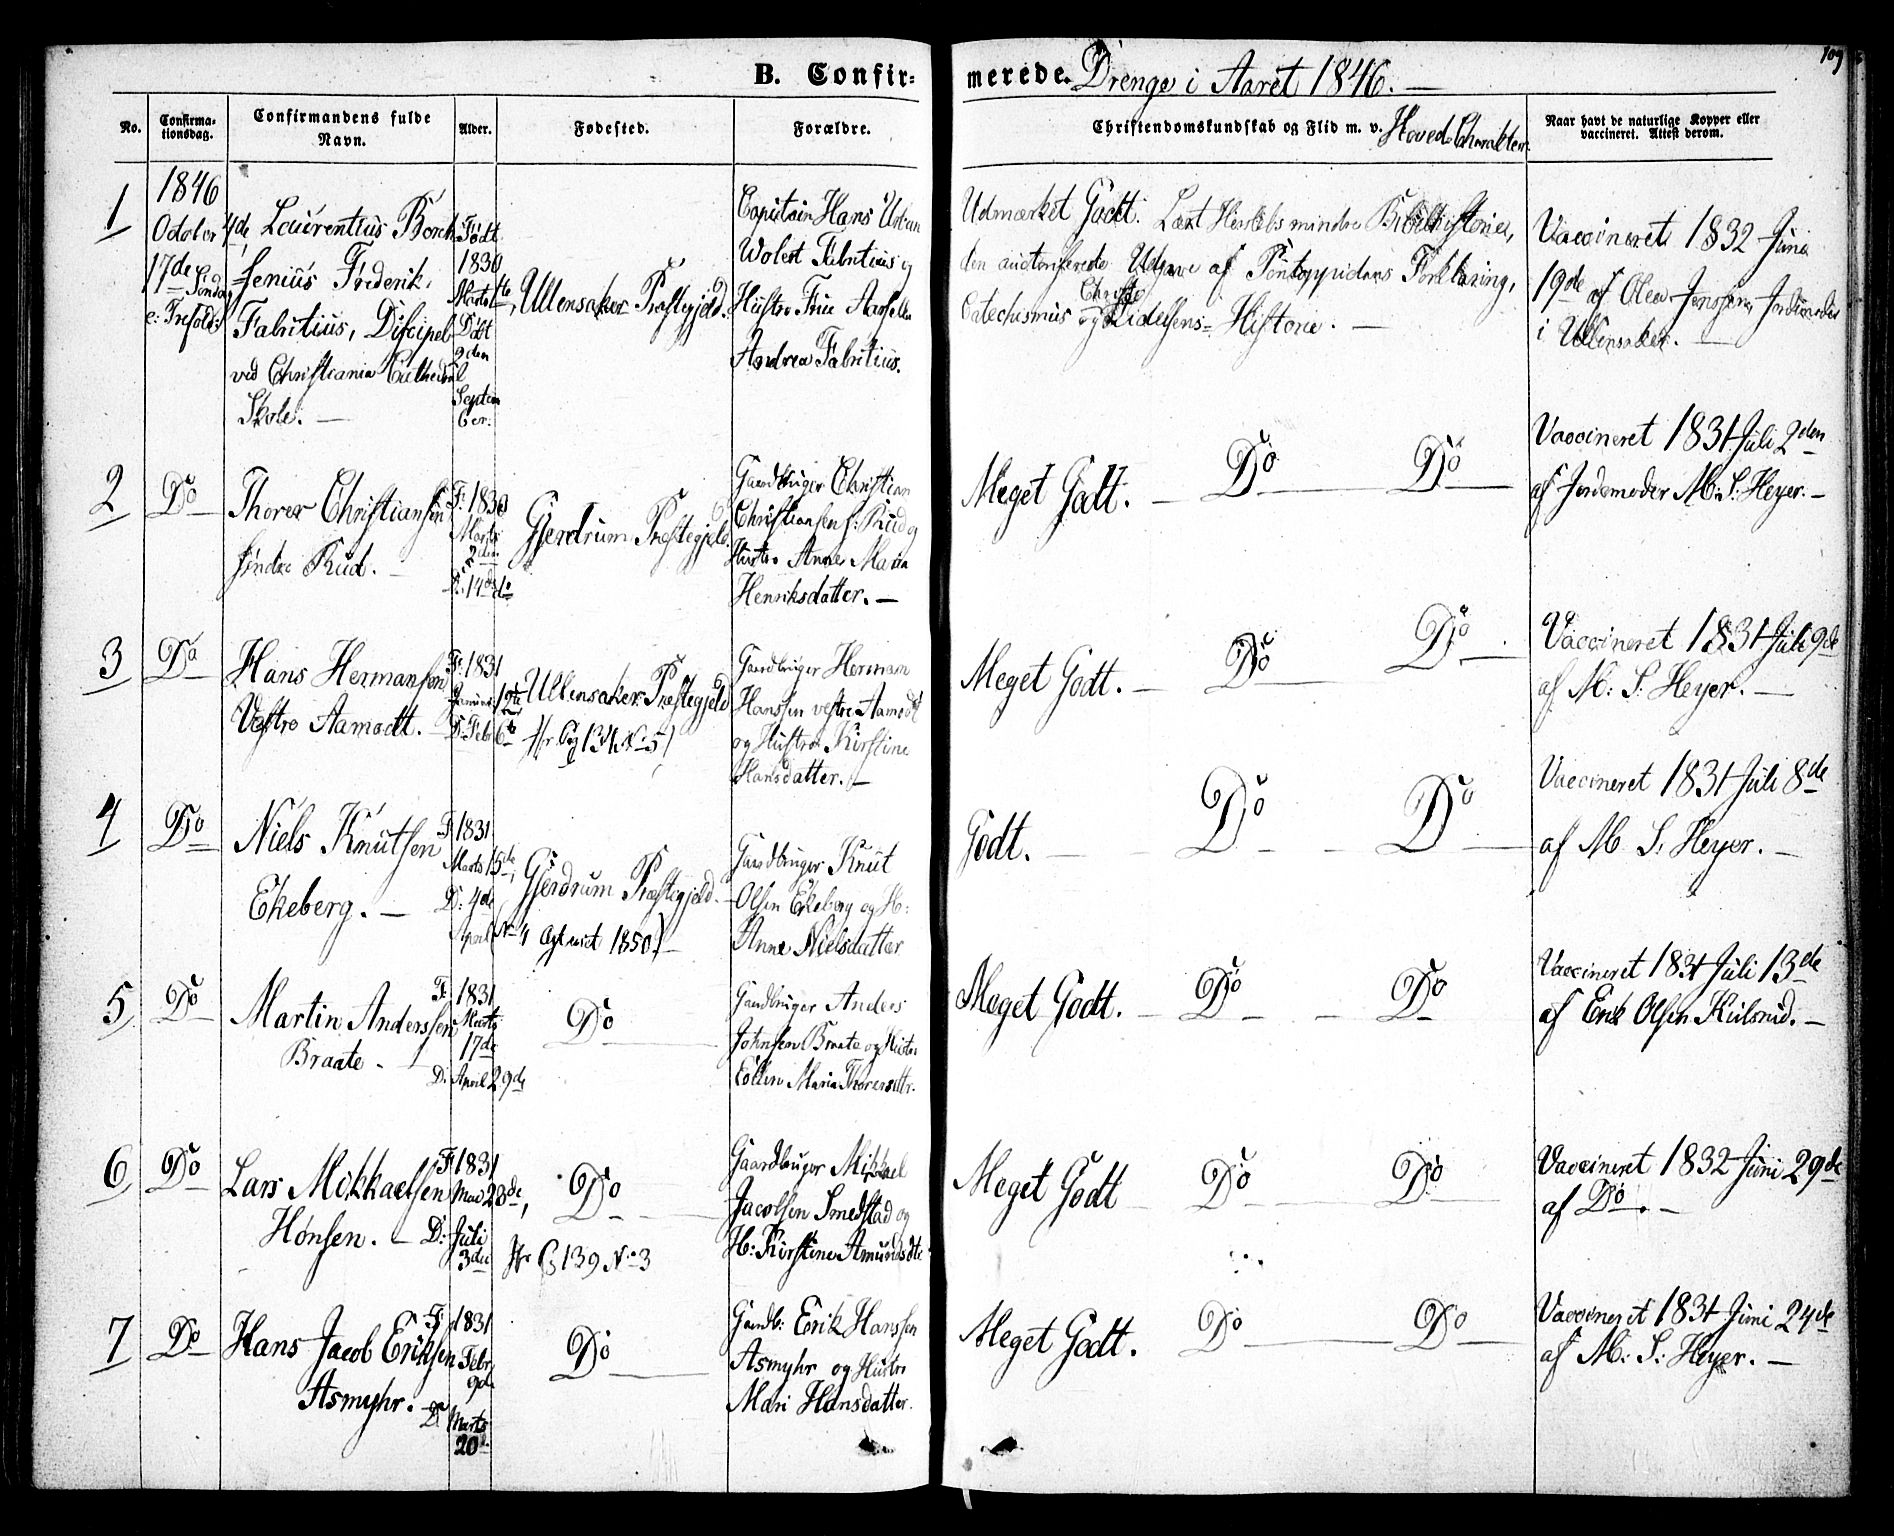 109
B. Confir- merede. Drenge i Aaret 1846. —
No.
Confirma-
tionsdag.
Confirmandens fulde
Navn.
Alder.
Fødested.
Forældre.
Christendomskundskab og Flid m. v. Hoved-Charakter.
Naar havt de naturlige Kopper eller
vaccineret. Attest derom.
1
1846
October
17de Søndag
e: Trefold:
Laurentius Borch-
senius Frederik
Fabritius, Discipel
ved Christiania Cathedral
Skole. —
Født
1830
Marts
Døbt
9den
Septem
ber.
Ullensaker Præstegjeld.
Capitain Hans
Wolert Fabritius og
Hustro Frue
Andrea Fabritius.
Udmærket Godt. Læst Herslebs mindre Bibelhistorie,
den auctoriserede Udgave af Pontoppidans Forklaring,
Catechismus og Christi Lidelsens-Historie. —
Vaccineret 1832 Juni
19de af Olea Jenssen, Jordmoder
i Ullensaker. —
2
Do
Thorer Christianssen
søndre Rud. —
F: 1830
Marts
2den
D: 14de do
Gjerdrum Præstegjeld.
Gaardbruger Christian
Christiansen s: Rud og
Hustro Anne Maria
Henriksdatter. —
Meget Godt. — Do — Do —
Vaccineret 1831 Juli 2den
af Jordemoder M: S: Heyer. —
3
Do
Hans Hermansen
Vestre Aamodt. —
F: 1831
Januar
D: Febr 6te
Ullensaker Præstegjeld
Gaardbruger Herman
Hanssen vestre Aamodt
og Hustro Kirstine
Hansdatter. —
Meget Godt. — Do — Do —
Vaccineret 1831 Juli 9de
af M: S: Heyer. —
4
Do
Niels Knutsen
Ekeberg. —
F 1831
Marts 15de,
D: 4de
April
Gjerdrum Præstegjeld. —
(No 4 Ægteviet 1850) —
Gaardbruger Knut
Olsen Ekeberg og H:
Anne Nielsdatter
Godt. — Do — Do —
Vaccineret 1831 Juli 8de
af M. S. Heyer. —
5
Do
Martin Anderssen
Braate. —
F: 1831
Marts
17de
D: April 29de
Do
Gaardbruger Anders
Johnsen Braate og Hustro
Maria Thorersdttr.
Meget Godt. — Do — Do
Vaccineret 1831 Juli 13de
af Erik Olsen Kulsrud. —
6
Do
Lars Mikkaelsen
Hønsen. —
F 1831
Mai 28de,
D: Juli
3die
Do
139 No 3
Gaardbruger Mikkael
Jacobsen Smedstad og
H: Kirstine Amundsdtr
Meget Godt — Do — Do —
Vaccineret 1832 Juni 29de
af Do. —
7
Do
Hans Jacob Eriksen
Asmyhr. —
F: 1831
Febr
9de
D: Marts
20d.
Do
Gaardb: Erik Hanssen
Asmyhr og Hustro
Mari Hansdatter.
Meget Godt. Do — Do —
Vaccineret 1831 Juni 24de
af M: S: Heyer. —